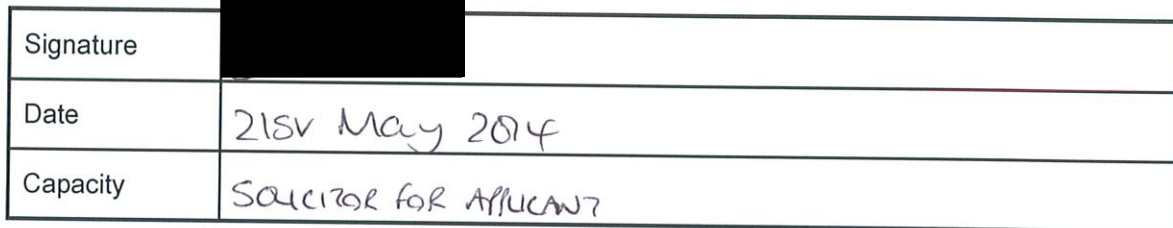 Signature
Date 21st May 2014
Capacity SOLICITOR FOR APPLICANT